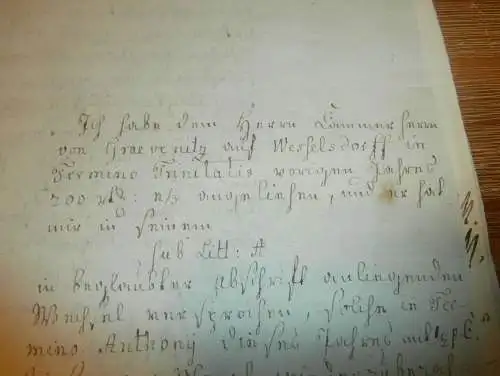 Ich habe dem Herrn Cammerherrn
von Graevenitz auf Wesselsdorff in
Termino Trinitatis vorigen Jahres
200 rtl: angeliehen, und er hat
mir in seinem
sub Litt: A
in beglaubter abschrift anliegenden
Wechsel versprochen, solche in Ter-
mino Anthony dieses Jahres